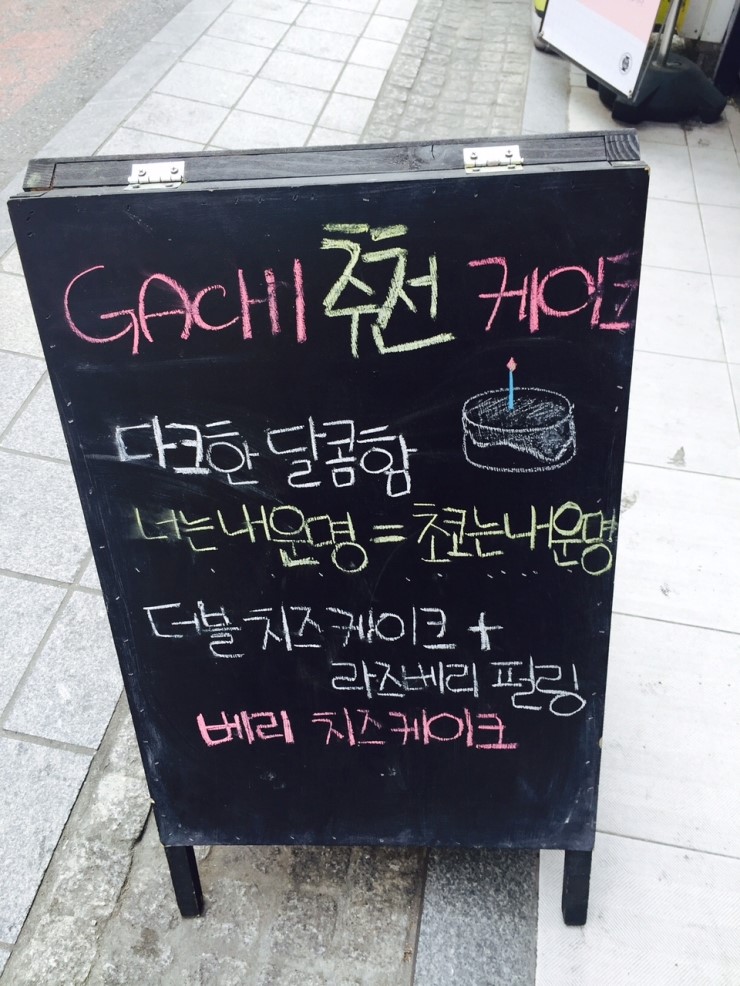 GACHI 추천 케이크
다크한 달콤함
너는내운명 = 초코는내운명
더블치즈케이크 +
라즈베리 펄링
베리 치즈케이크